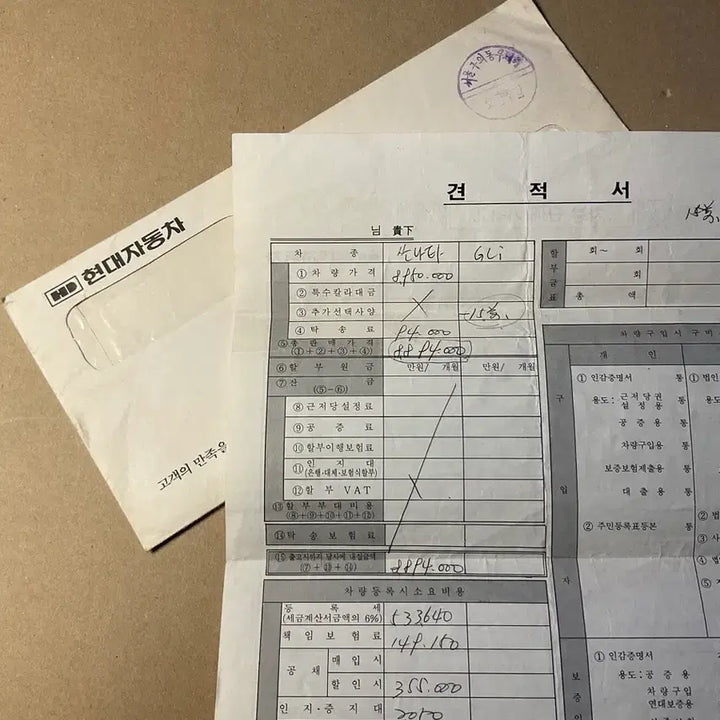 현대자동차
고객의 만족을
견 적 서
님 貴下
차 종 쏘나타 GLi
① 차 량 가 격 8950.000
② 특수칼라대금
③ 추가선택사양 -15萬
④ 탁 송 료 94.000
⑤ 총 판 매 가 격 8894.000
(①+②+③+④)
⑥ 할 부 원 금 만원/ 개월 만원/ 개월
⑦ 산 금
(⑤-⑥)
⑧ 근저당설정료
⑨ 공 증 료
⑩ 할부이행보험료
⑪ 인 지 대
(은행·대체·보험식할부)
⑫ 할 부 VAT
⑬ 할 부 부 대 비 용
(⑧+⑨+⑩+⑪+⑫)
⑭ 탁 송 보 험 료
⑮ 출고시까지 당사에 내실금액 8894.000
(⑦+⑬+⑭)
차 량 등 록 시 소 요 비 용
등 록 세 533,640
(세금계산서금액의 6%)
책 임 보 험 료 149.150
공 채 매 입 시
할 인 시 355.000
인 지 · 증 지 대 2050
할 부 금 표
회 ~ 회
회
총 액
차량구입시구비
구 입 자
개 인
① 인감증명서 통
용도: 근저당권 설정용 통
공 증 용 통
차량구입용 통
보증보험제출용 통
대 출 용 통
② 주민등록표등본 통
① 법인
② 법
③ 사
④ 법
보 증 인
① 인감증명서
용도: 공 증 용
차 량 구 입
연대보증용